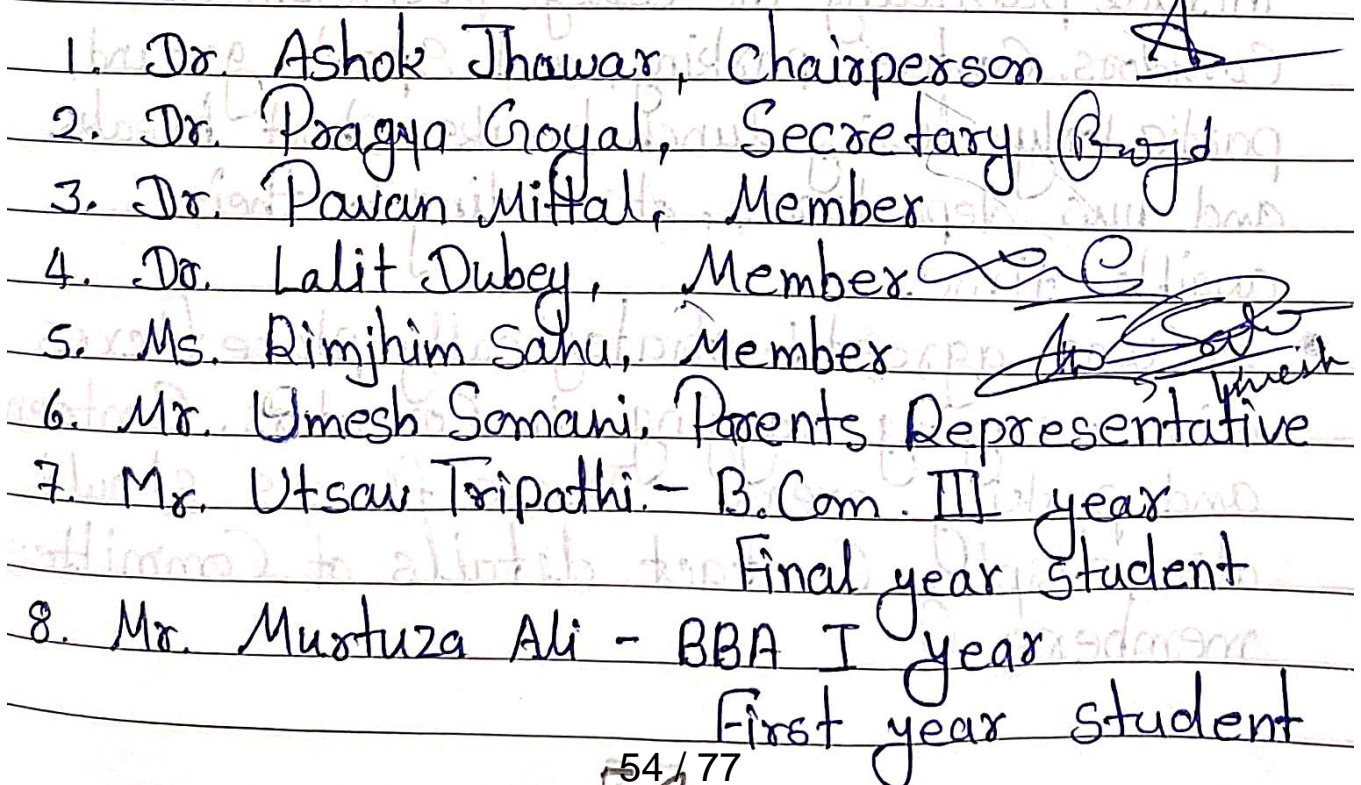 1. Dr. Ashok Jhawar, Chairperson
2. Dr. Pragya Goyal, Secretary
3. Dr. Pavan Mittal, Member
4. Dr. Lalit Dubey, Member
5. Ms. Rimjhim Sahu, Member
Umesh
6. Mr. Umesh Somani, Parents Representative
7. Mr. Utsav Tripathi - B.Com. III year
Final year student
8. Mr. Murtuza Ali - BBA I year
First year student
54 / 77